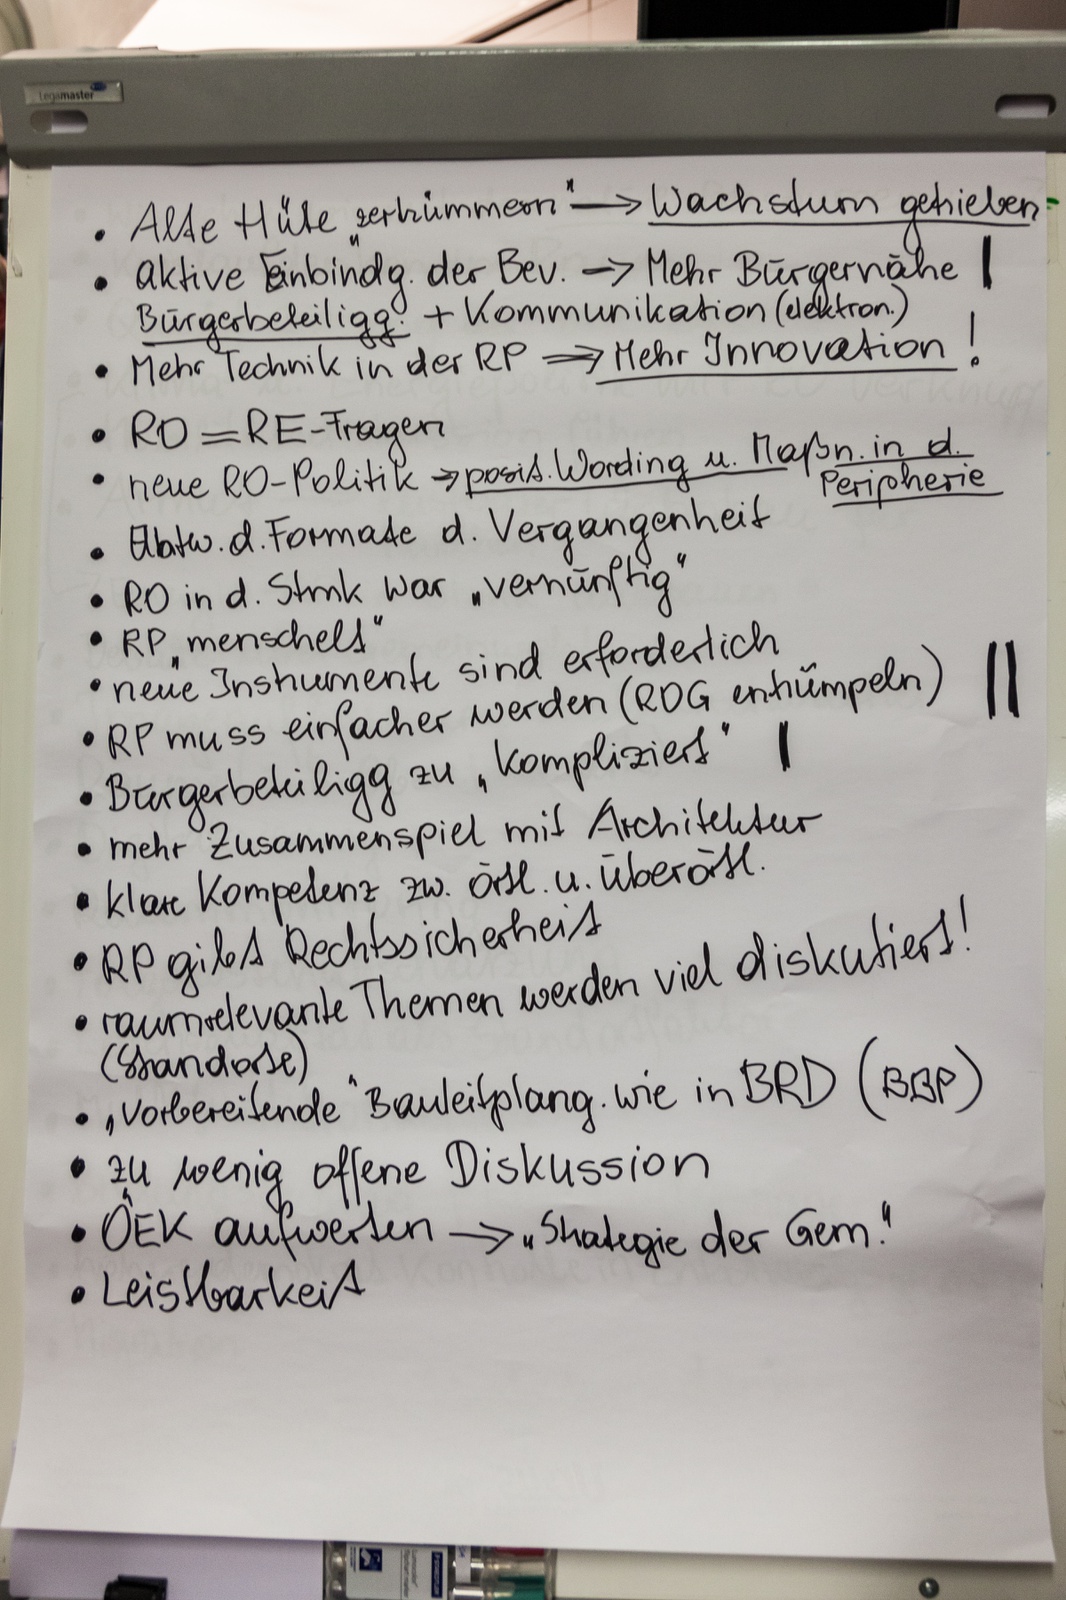 Legamaster
• Alte Hüte „zertrümmern" → Wachstum getrieben
• aktive Einbindg. der Bev. → Mehr Bürgernähe |
Bürgerbeteiligg! + Kommunikation (elektron.)
• Mehr Technik in der RP ⇒ Mehr Innovation !
• RO = RE-Fragen
• neue RO-Politik → posit. Wording u. Maßn. in d.
Peripherie
• d. Formate d. Vergangenheit
• RO in d. Stmk war „vernünftig"
• RP „menschelt"
• neue Instrumente sind erforderlich
• RP muss einfacher werden (ROG entrümpeln) ||
• Bürgerbeteiligg zu „kompliziert" |
• mehr Zusammenspiel mit Architektur
• klare Kompetenz zw. örtl. u. überörtl.
• RP gibt Rechtssicherheit
• raumrelevante Themen werden viel diskutiert!
(Standorte)
• „vorbereitende" Bauleitplang. wie in BRD (BBP)
• zu wenig offene Diskussion
• ÖEK aufwerten → „Strategie der Gem."
• Leistbarkeit